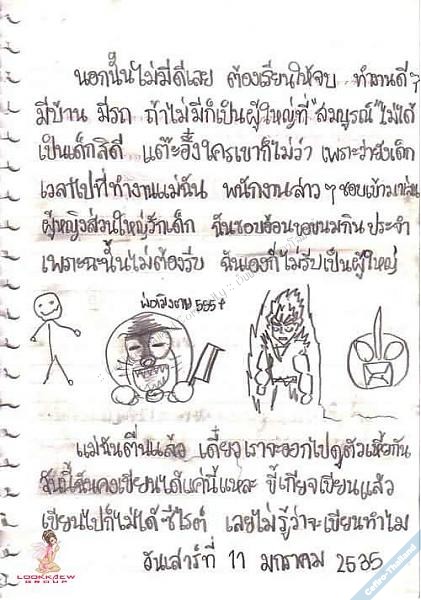 นอกนั้นไม่มีดีเลย ต้องเรียนให้จบ ทำงานดีๆ
มีบ้าน มีรถ ถ้าไม่มีก็เป็นผู้ใหญ่ที่ "สมบูรณ์" ไม่ได้
เป็นเด็กสิดี แต๊ะอั๋งใครเขาก็ไม่ว่า เพราะว่ายังเด็ก
เวลาไปที่ทำงานแม่ฉัน พนักงานสาวๆ ชอบเข้ามา
ผู้หญิงส่วนใหญ่รักเด็ก ฉันชอบอ้อนขอขนมกินประจำ
เพราะฉะนั้นไม่ต้องรีบ ฉันเองก็ไม่รีบเป็นผู้ใหญ่
พ่อมึงตาย 555+
แม่ฉันตื่นแล้ว เดี๋ยวเราจะออกไปดูตัวเหี้ยกัน
วันนี้ฉันคงเขียนได้แค่นี้แหละ ขี้เกียจเขียนแล้ว
เขียนไปก็ไม่ได้ซีไรต์ เลยไม่รู้ว่าจะเขียนทำไม
วันเสาร์ที่ 11 มกราคม 2535
LOOKKAEW
GROUP
Cefiro-Thailand